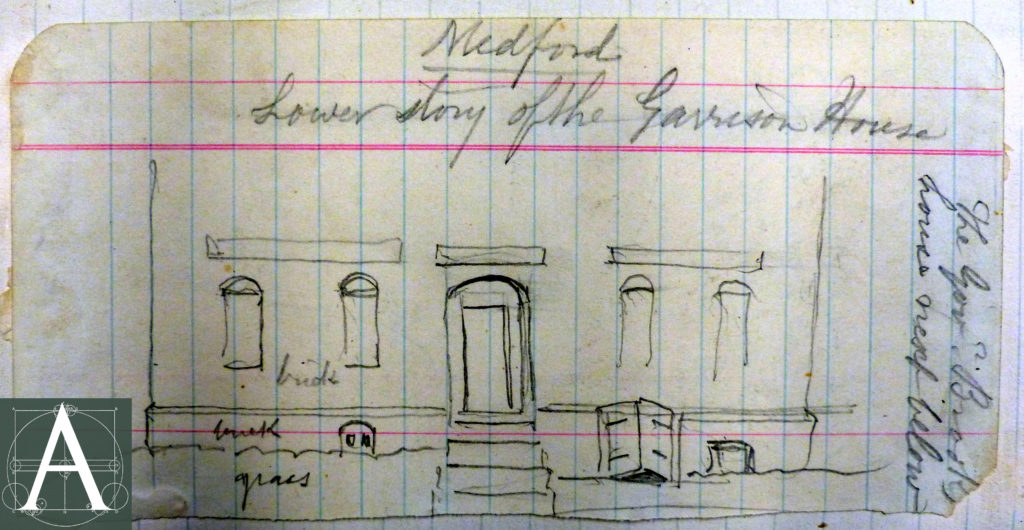 Medford
Lower story of the Garrison House
The Gov. Brooks
house next below
brick
brick
grass
A